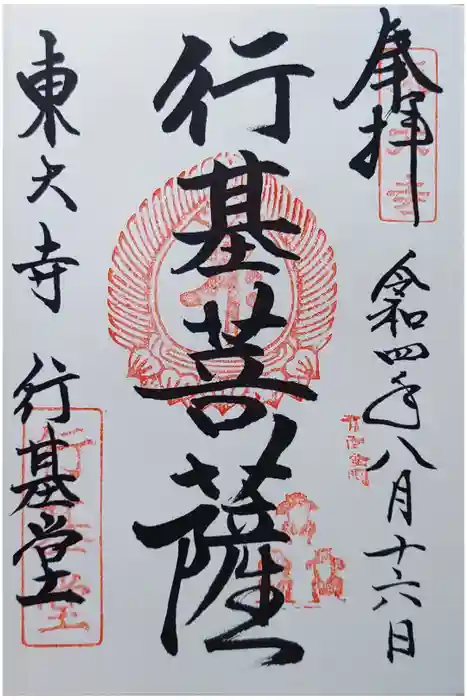 奉拝
令和四年八月十六日
行基菩薩
東大寺 行基堂
行基堂